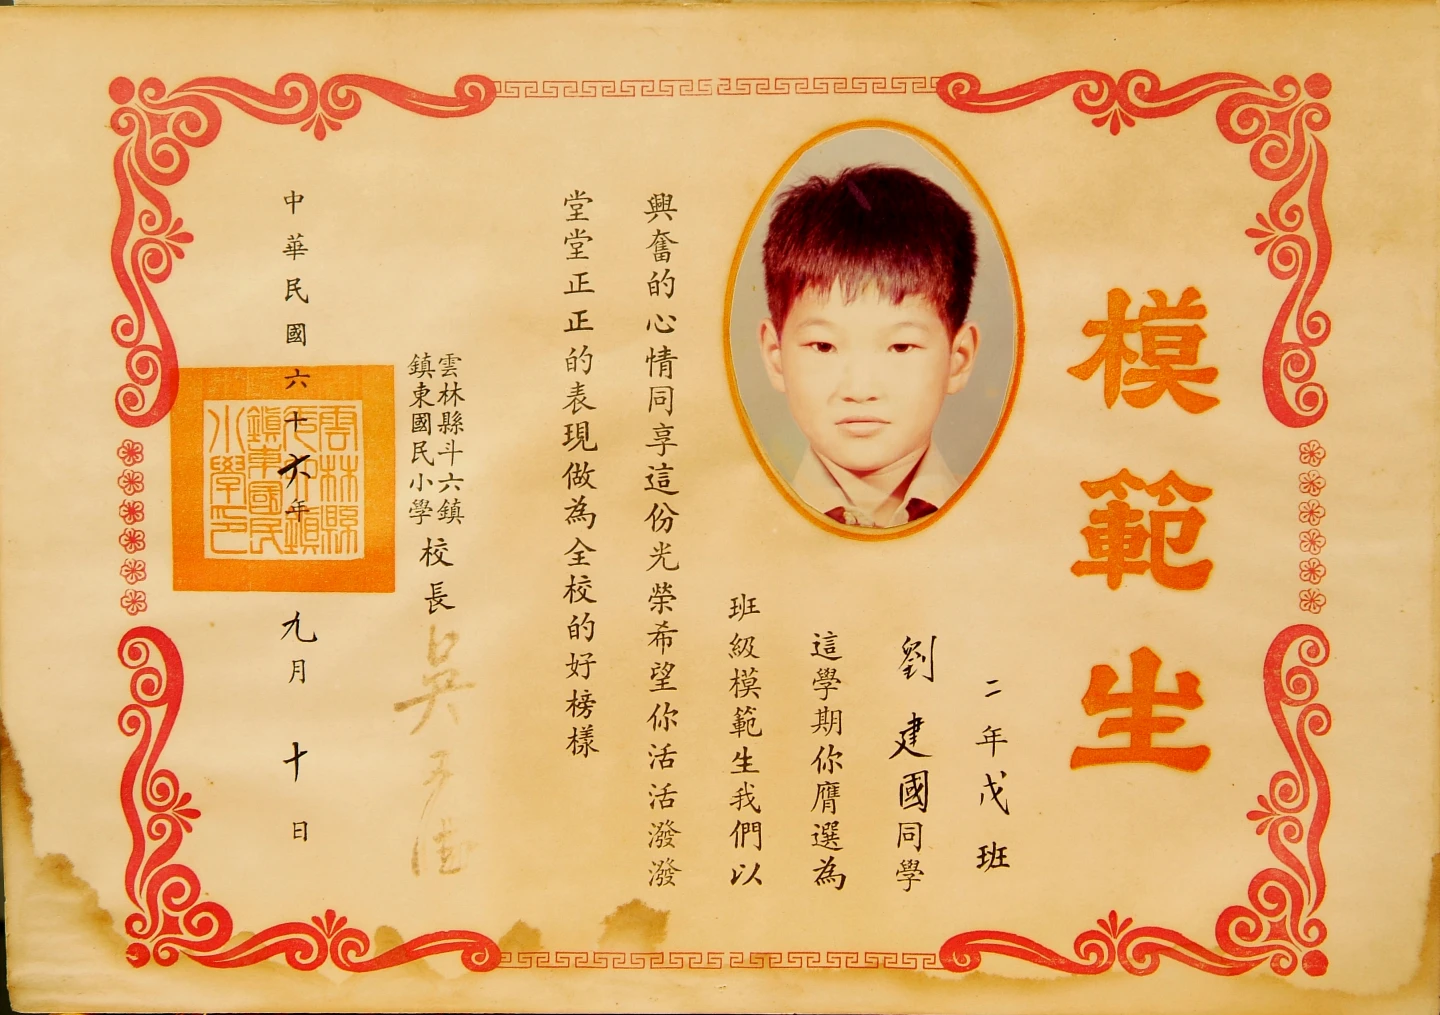 模範生
二年戊班
劉建國同學
這學期你膺選為
班級模範生我們以
興奮的心情同享這份光榮希望你活活潑潑
堂堂正正的表現做為全校的好榜樣
雲林縣斗六鎮
鎮東國民小學
校長
中華民國六十六年九月十日
雲林縣
斗六鎮
鎮東國民
小學印